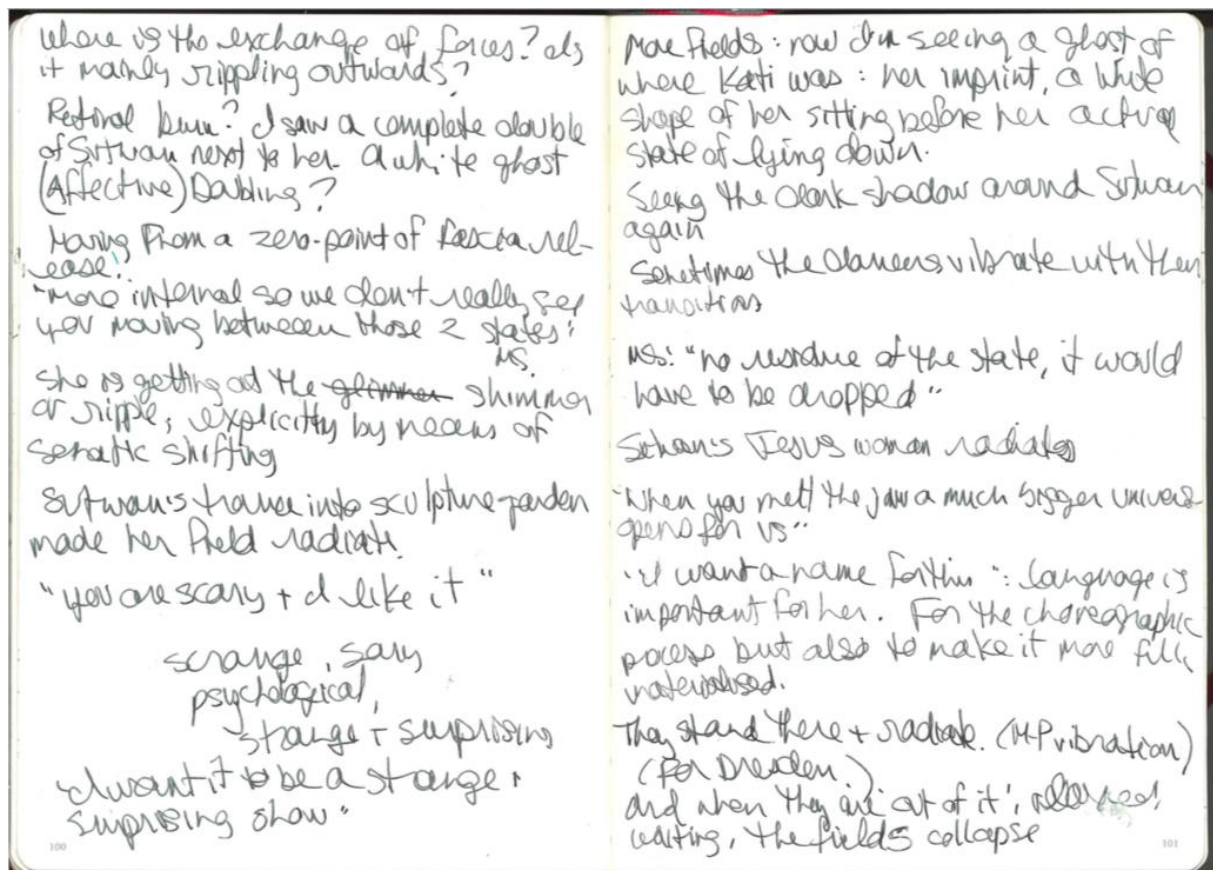 Where is the exchange of forces? Is
it mainly rippling outwards?
Retinal burn? I saw a complete double
of Sutwan next to her. A white ghost
(Affective) Doubling?
Moving from a zero-point of fascia rel-
ease!
"more internal so we don't really see
you moving between those 2 states"
MS.
She is getting at the glimmer shimmer
or ripple, explicitly by means of
somatic shifting
Sutwan's trance into sculpture-garden
made her field radiate.
"you are scary + I like it"
strange, scary
psychological,
strange + surprising
"I want it to be a strange +
surprising show"
100
More fields: now I'm seeing a ghost of
where Kati was: her imprint, a white
shape of her sitting before her actual
state of lying down.
Seeing the dark shadow around Sutwan
again
Sometimes the dancers vibrate with their
transitions
MS: "no residue of the state, it would
have to be dropped"
Sutwan's Jesus woman radiates
"When you melt the jaw a much bigger universe
opens for us"
"I want a name for this": language is
important for her. For the choreographic
process but also to make it more fully
materialised.
They stand there + radiate. (M-P vibration)
(for Dresden.)
and when they are 'out of it', relaxed,
waiting, the fields collapse
101